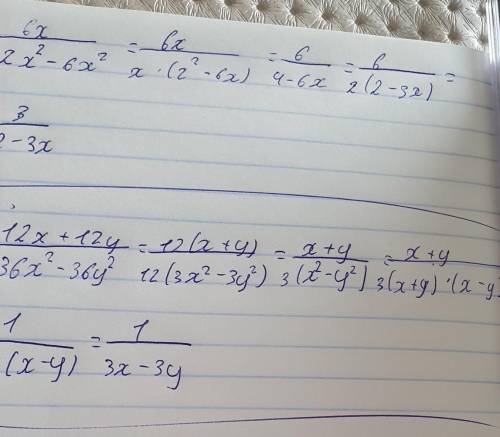 6x / 2x² - 6x² = 6x / x · (2² - 6x) = 6 / 4 - 6x = 6 / 2(2 - 3x) =
3 / 2 - 3x
12x + 12y / 36x² - 36y² = 12(x + y) / 12(3x² - 3y²) = x + y / 3(x² - y²) = x + y / 3(x + y) · (x - y)
1 / (x - y) = 1 / 3x - 3y